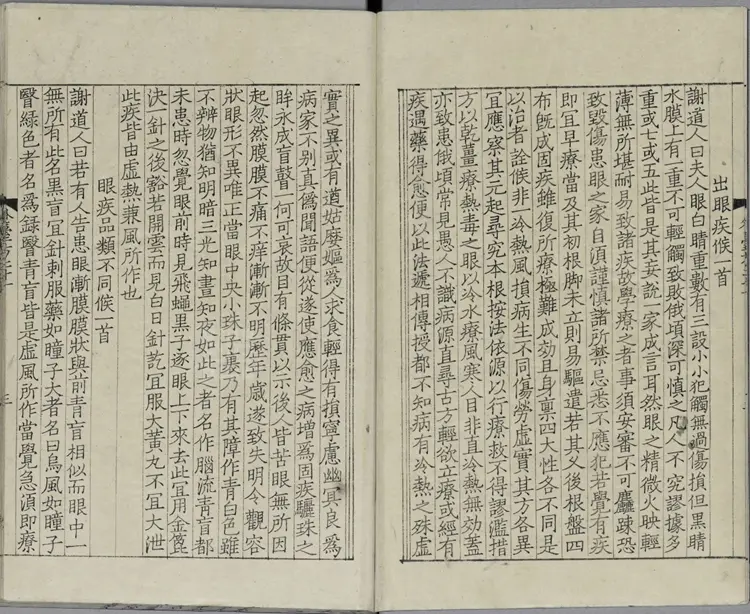 出眼疾候一首
謝道人曰夫人眼白睛重數有三設小小犯觸無過傷損但黑睛
水膜上有一重不可輕觸致敗俄頃深可慎之凡人不究謬據多
重或七或五此皆是其妄說一家成言耳然眼之精微火映輕
薄無所堪耐易致諸疾故學療之者事須安審不可麤踈恐
致毀傷患眼之家自須謹慎諸所禁忌悉不應犯若覺有疾
即宜早療當及其初根脚未立則易驅遣若其久後根盤四
布旣成固疾雖復所療極難成効且身稟四大性各不同是
以治者詮候非一冷熱風損病生不同傷勞虛實其方各異
宜應察其元起尋究本根按法依源以行療救不得謬濫措
方以乾薑療熱毒之眼以冷水療風寒人目非直冷熱無効蓋
亦致患俄頃常見愚人不識病源直尋古方輕欲立療或經有
疾遇藥得愈便以此法遞相傳授都不知病有冷熱之殊虛
實之異或有道姑麼嫗爲人求食輕得有損寧慮幽冥良爲
病家不别真僞聞語便從遂使應愈之病增爲固疾驪珠之
眸永成盲瞽一何可哀故目有條貫以示後人皆苦眼無所因
起忽然膜膜不痛不痒漸漸不明歷年歲遂致失明令觀容
狀眼形不異唯正當眼中央小珠子裹乃有其障作青白色雖
不辨物猶知明暗三光知晝知夜如此之者名作腦流青盲都
未患時忽覺眼前時見飛蠅黑子逐眼上下來去此宜用金篦
決一針之後豁若開雲而見白日針訖宜服大黃丸不宜大泄
此疾皆由虛熱兼風所作也
眼疾品類不同候一首
謝道人曰若有人告患眼漸膜膜狀與前青盲相似而眼中一
無所有此名黑盲宜針刺服藥如瞳子大者名曰烏風如瞳子
翳緑色者名爲録翳青盲皆是虛風所作當覺急須即療
三